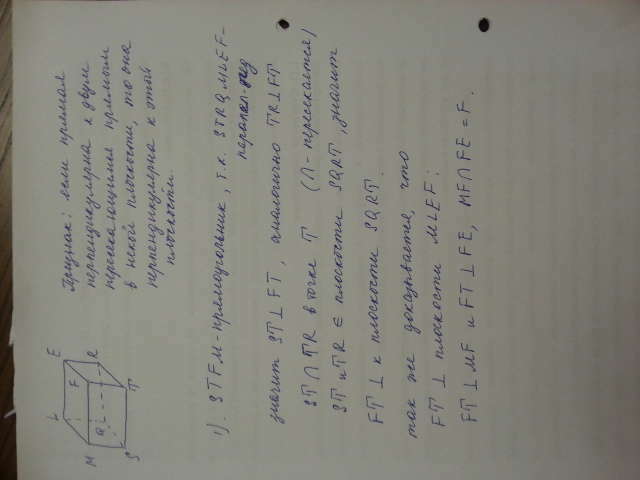 Признак: если прямая
перпендикулярна к двум
пересекающимся прямым
в некой плоскости, то она
перпендикулярна к этой
плоскости.
L
E
M
F
Q
R
S
T
1). STFM - прямоугольник, т.к. STRQMLEF -
параллел-пед
значит ST ⊥ FT, аналогично TR ⊥ FT
ST ∩ TR в точке T (∩ - пересекается)
ST и TR ∈ плоскости SQRT, значит
FT ⊥ к плоскости SQRT.
так же доказывается, что
FT ⊥ плоскости MLEF:
FT ⊥ MF и FT ⊥ FE, MF ∩ FE = F.